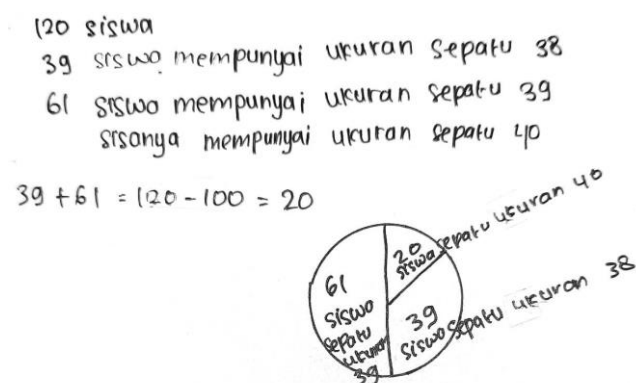 120 siswa
39 siswa mempunyai ukuran sepatu 38
61 siswa mempunyai ukuran sepatu 39
sisanya mempunyai ukuran sepatu 40
39 + 61 = 120 - 100 = 20
20
siswa sepatu ukuran 40
61
siswa
sepatu
ukuran
39
39
siswa sepatu ukuran 38